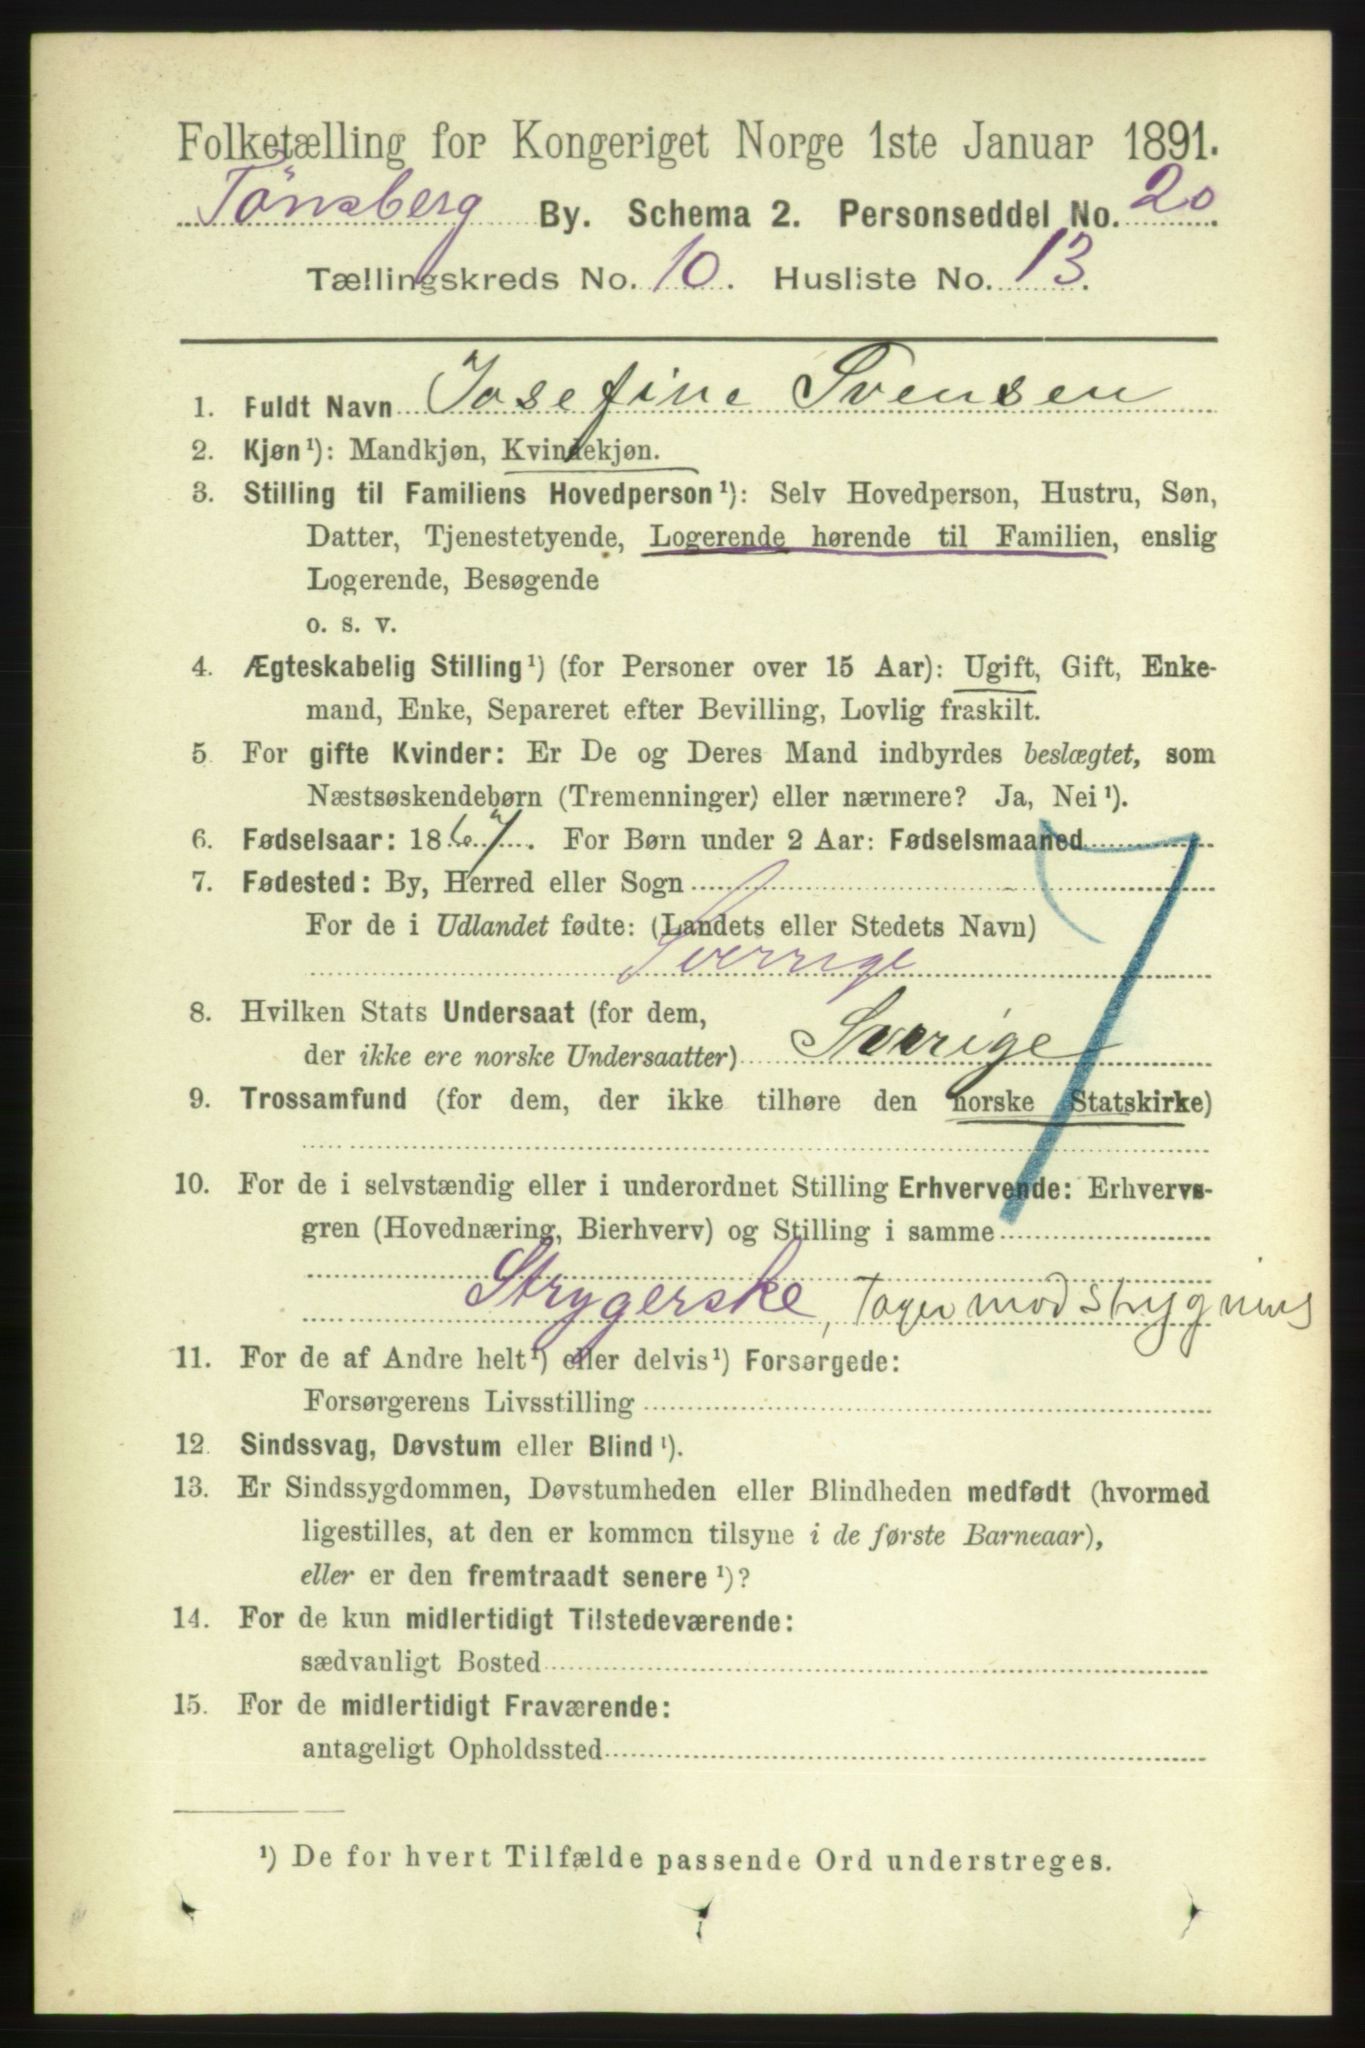 Folketælling for Kongeriget Norge 1ste Januar 1891.
Tönsberg By. Schema 2. Personseddel No. 20.
Tællingskreds No. 10. Husliste No. 13.
1. Fuldt Navn Josefine Svensen
2. Kjøn¹): Mandkjøn, Kvindekjøn.
3. Stilling til Familiens Hovedperson¹): Selv Hovedperson, Hustru, Søn,
Datter, Tjenestetyende, Logerende hørende til Familien, enslig
Logerende, Besøgende
o. s. v.
4. Ægteskabelig Stilling¹) (for Personer over 15 Aar): Ugift, Gift, Enke-
mand, Enke, Separeret efter Bevilling, Lovlig fraskilt.
5 For gifte Kvinder: Er De og Deres Mand indbyrdes beslægtet, som
Næstsøskendebørn (Tremenninger) eller nærmere? Ja, Nei¹).
6. Fødselsaar: 1867. For Børn under 2 Aar: Fødselsmaaned
7. Fødested: By, Herred eller Sogn
For de i Udlandet fødte: (Landets eller Stedets Navn)
Sverrige
8. Hvilken Stats Undersaat (for dem,
der ikke ere norske Undersaatter) Sverige
9. Trossamfund (for dem, der ikke tilhøre den norske Statskirke)
10. For de i selvstændig eller i underordnet Stilling Erhvervende: Erhvervs-
gren (Hovednæring, Bierhverv) og Stilling i samme
Strygerske, Tager mod strygning
11. For de af Andre helt¹) eller delvis¹) Forsørgede:
Forsørgerens Livsstilling
12 Sindssvag, Døvstum eller Blind¹).
13. Er Sindssygdommen, Døvstumheden eller Blindheden medfødt (hvormed
ligestilles, at den er kommen tilsyne i de første Barneaar),
eller er den fremtraadt senere¹)?
14. For de kun midlertidigt Tilstedeværende:
sædvanligt Bosted
15. For de midlertidigt Fraværende:
antageligt Opholdssted
¹) De for hvert Tilfælde passende Ord understreges.